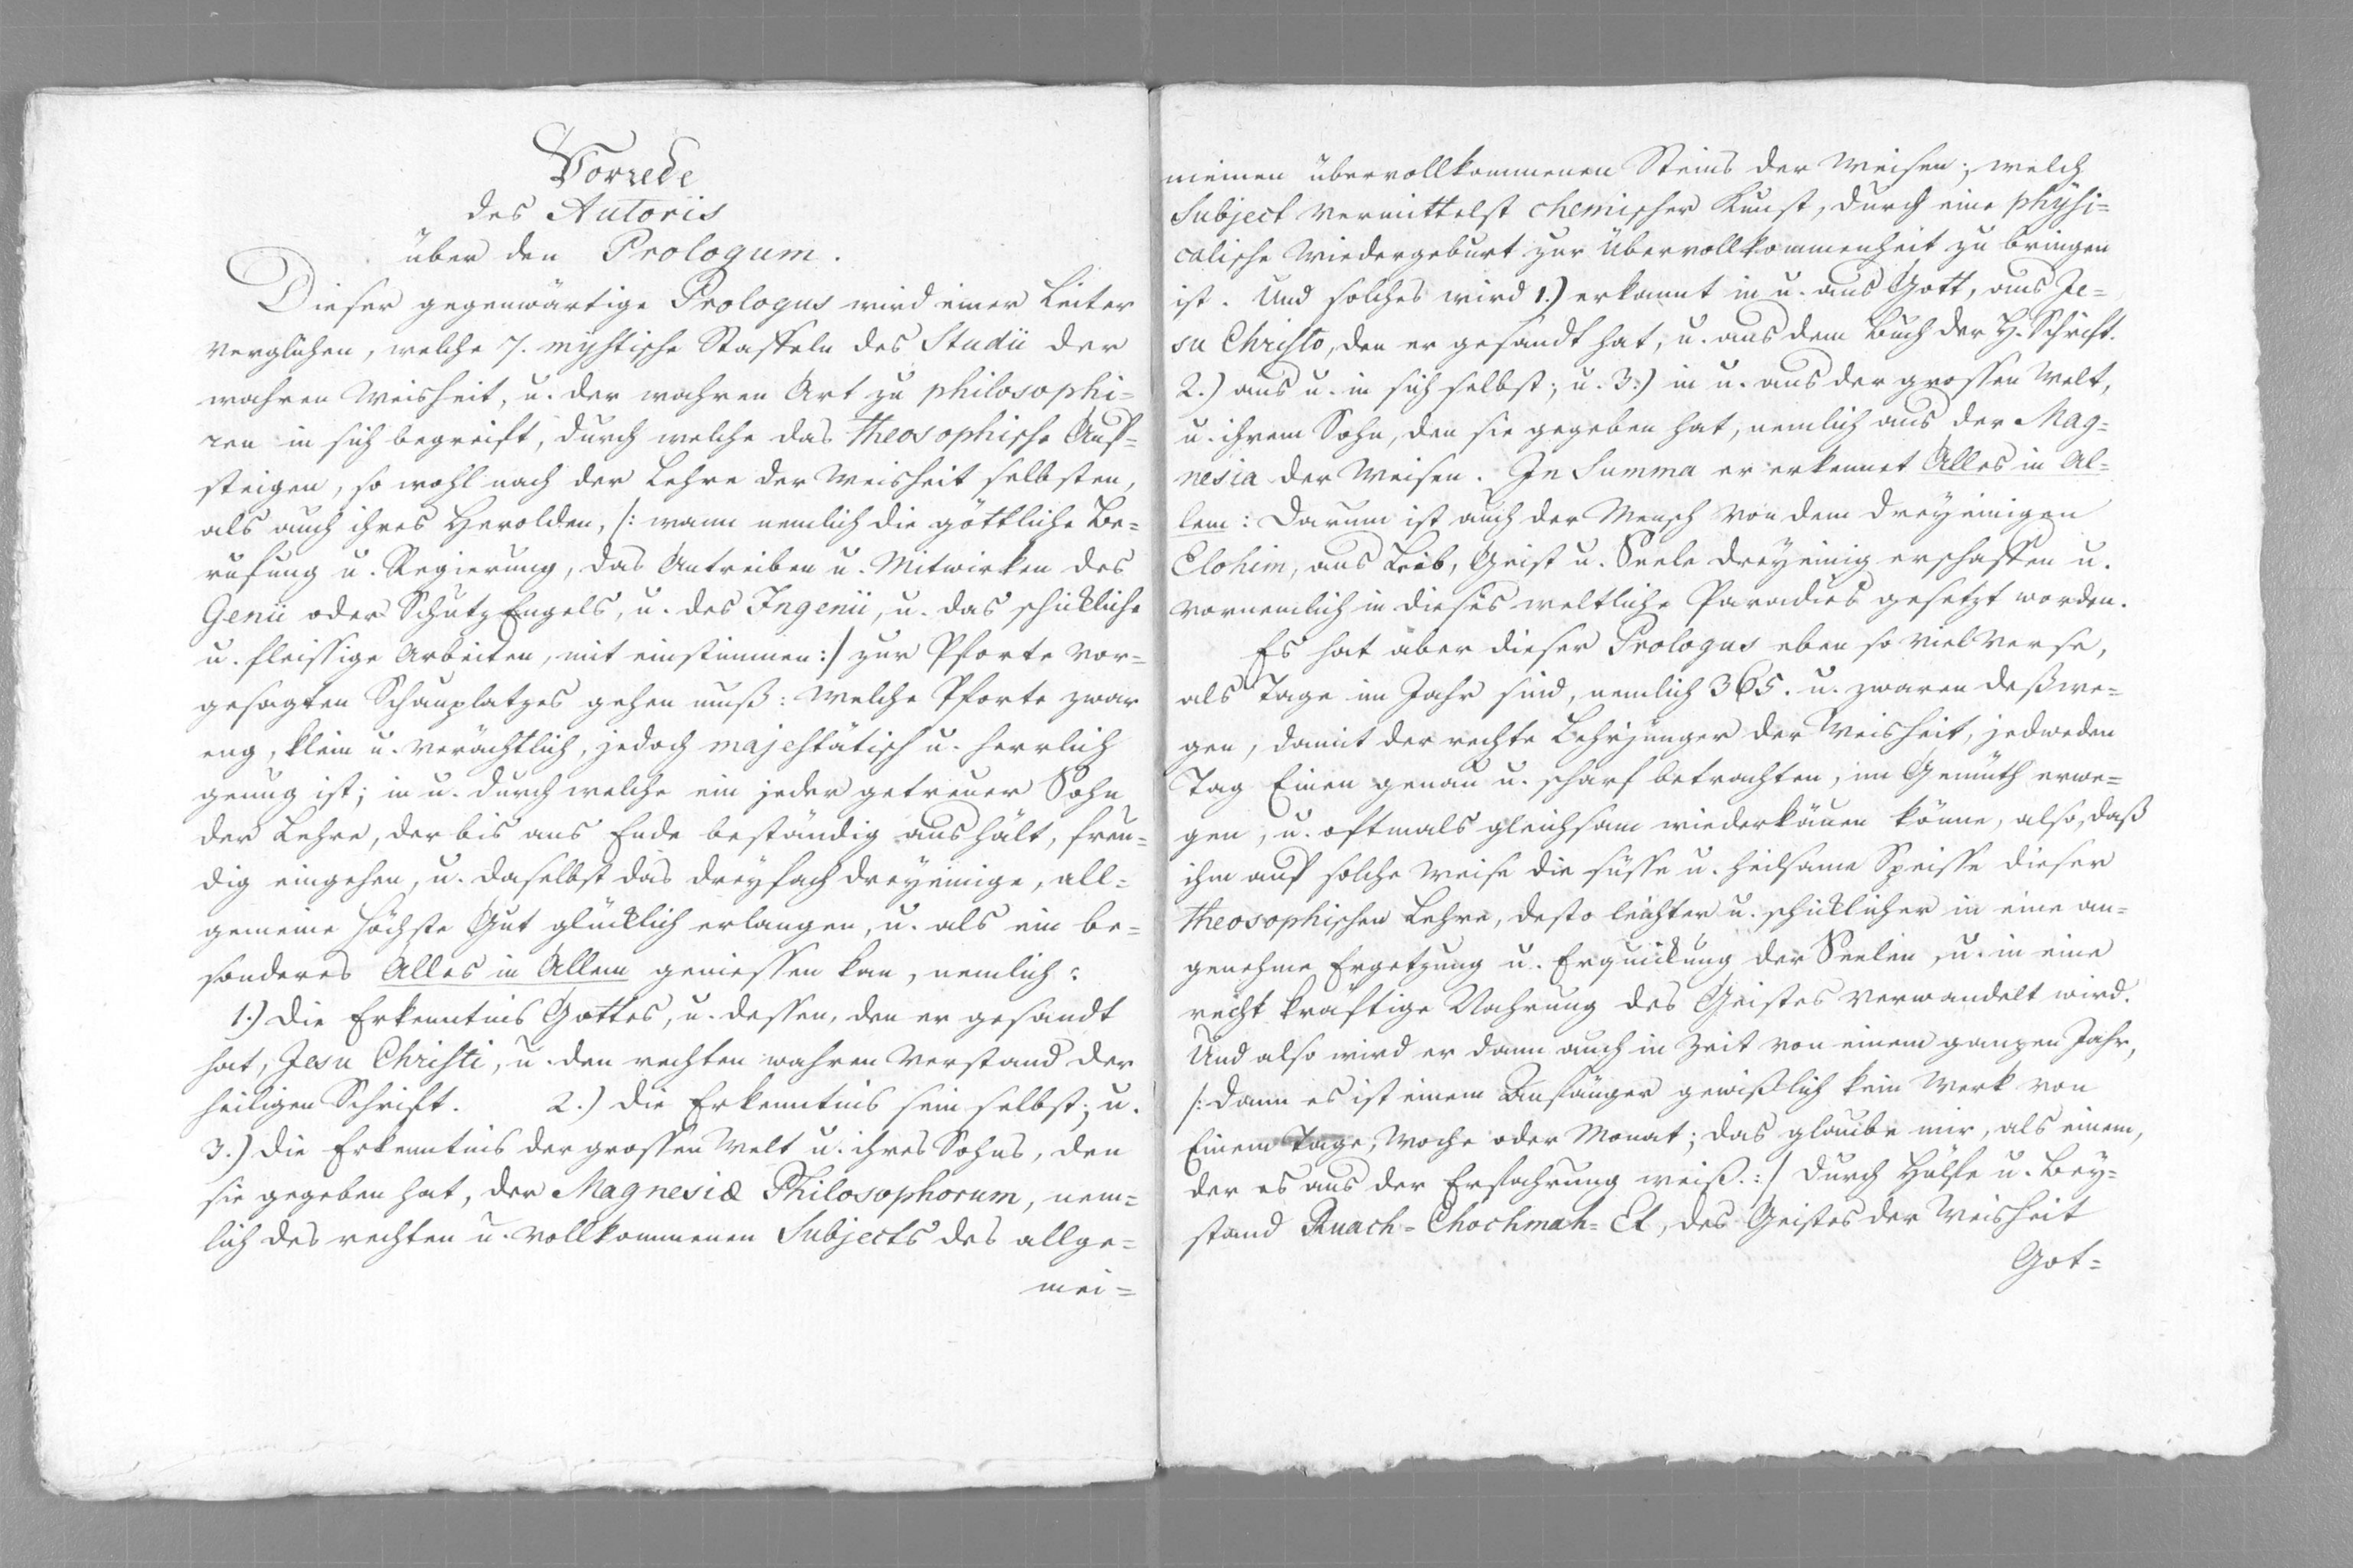 Vorrede
des Autoris
über den Prologum.
Dieser gegenwärtige Prologus wird einer Leiter
verglichen, welche 7. mystische Staffeln des Studii der
wahren Weisheit, u. der wahren Art zu philosophi=
ren in sich begreift, durch welche das theosophische Auf=
steigen, so wohl nach der Lehre der Weisheit selbsten,
als auch ihres Herolden, /: wann nemlich die göttliche Be=
rufung u. Regierung, das Antreiben u. Mitwirken des
Genii oder SchutzEngels, u. des Ingenii, u. das schickliche
u. fleissige Arbeiten, mit einstimmen :/ zur Pforte vor=
gesagten Schauplatzes gehen muß: Welche Pforte zwar
eng, klein u. verächtlich, jedoch majestätisch u. herrlich
genug ist; in u. durch welche ein jeder getreuer Sohn
der Lehre, der bis ans Ende beständig aushält, freu=
dig eingehen, u. daselbst das dreyfach dreyeinige, all=
gemeine höchste Gut glücklich erlangen, u. als ein be=
sonderes Alles in Allem geniessen kan, nemlich:
1.) Die Erkenntnis Gottes, u. dessen, den er gesandt
hat, Jesu Christi, u. den rechten wahren Verstand der
heiligen Schrift. 2.) Die Erkenntnis sein selbst; u.
3.) Die Erkenntnis der grossen Welt u. ihres Sohns, den
sie gegeben hat, der Magnesiæ Philosophorum, nem=
lich des rechten u. vollkommenen Subjects des allge=
mei=
meinen übervollkommenen Steins der Weisen; welch
Subject vermittelst chemischer Kunst, durch eine physi=
calische Wiedergeburt zur Übervollkommenheit zu bringen
ist. Und solches wird 1.) erkannt in u. aus Gott, aus Je=
su Christo, den er gesandt hat, u. aus dem Buch der H. Schrift.
2.) aus u. in sich selbst; u. 3.) in u. aus der grossen Welt,
u. ihrem Sohn, den sie gegeben hat, nemlich aus der Mag=
nesia der Weisen. In Summa er erkennet Alles in Al=
lem: Darum ist auch der Mensch von dem dreyeinigen
Elohim, aus Leib, Geist u. Seele dreyeinig erschaffen u.
vornemlich in dieses weltliche Paradies gesetzt worden.
Es hat aber dieser Prologus eben so viel Verse,
als Tage im Jahr sind, nemlich 365. u. zwaren deßwe=
gen, damit der rechte Lehrjünger der Weisheit, jedweden
Tag Einen genau u. scharf betrachten, im Gemüth erwe=
gen, u. oftmals gleichsam wiederkäuen könne, also, daß
ihm auf solche Weise die süsse u. heilsame Speisse dieser
theosophischen Lehre, desto leichter u. schicklicher in eine an=
genehme Ergetzung u. Erquickung der Seelen, u. in eine
recht kräftige Nahrung des Geistes verwandelt wird.
Und also wird er dann auch in Zeit von einem ganzen Jahr,
/: dann es ist einem Anfänger gewißlich kein Werk von
Einem Tage, Woche oder Monat; das glaube mir, als einem,
der es aus der Erfahrung weiß. :/ durch Hülfe u. Bey=
stand Ruach=Chochmah=El, des Geistes der Weisheit
Got=